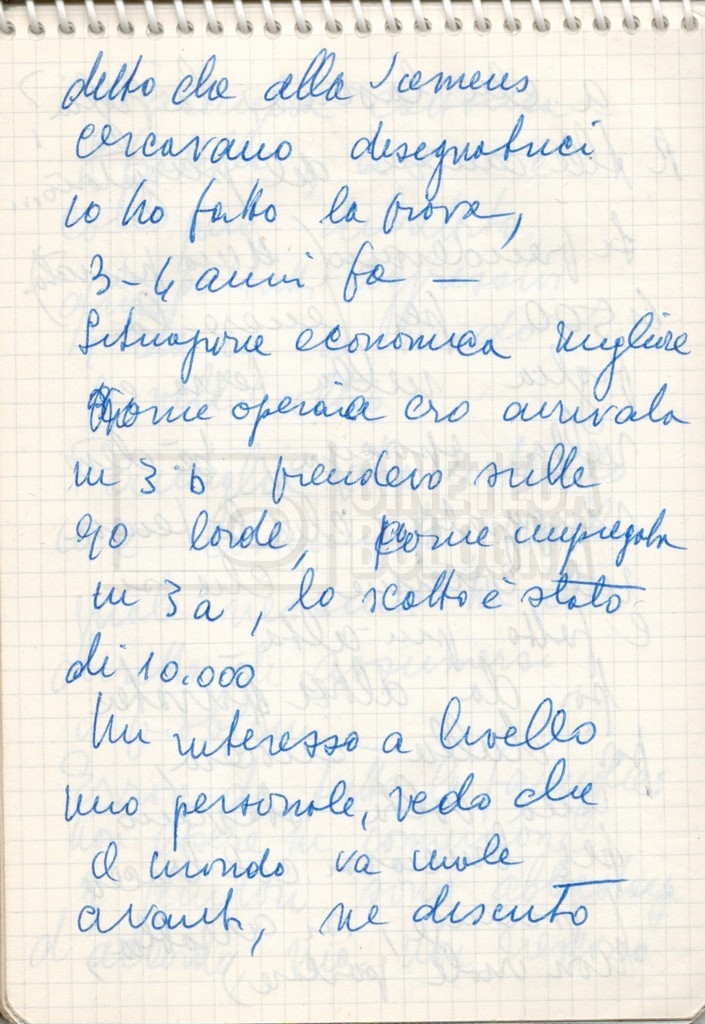 detto che alla Siemens
cercavano disegnatrici
io ho fatto la prova,
3-4 anni fa —
Situazione economica migliore
Come operaia ero arrivata
in 3 b prendevo sulle
90 lorde, come impiegata
in 3a, lo scatto è stato
di 10.000
Mi interesso a livello
mio personale, vedo che
il mondo va male
avanti, ne discuto